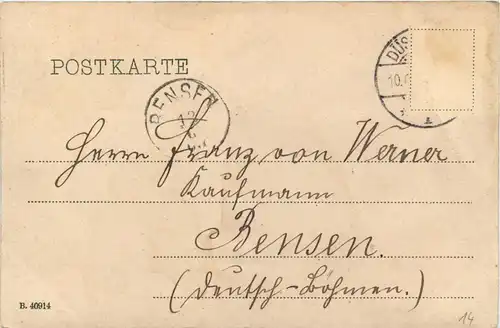 POSTKARTE
DÜS
10.
BENSEN
12
Herrn Franz von Werner
Kaufmann
Bensen.
(Deutsch-Böhmen.)
B. 40914
14